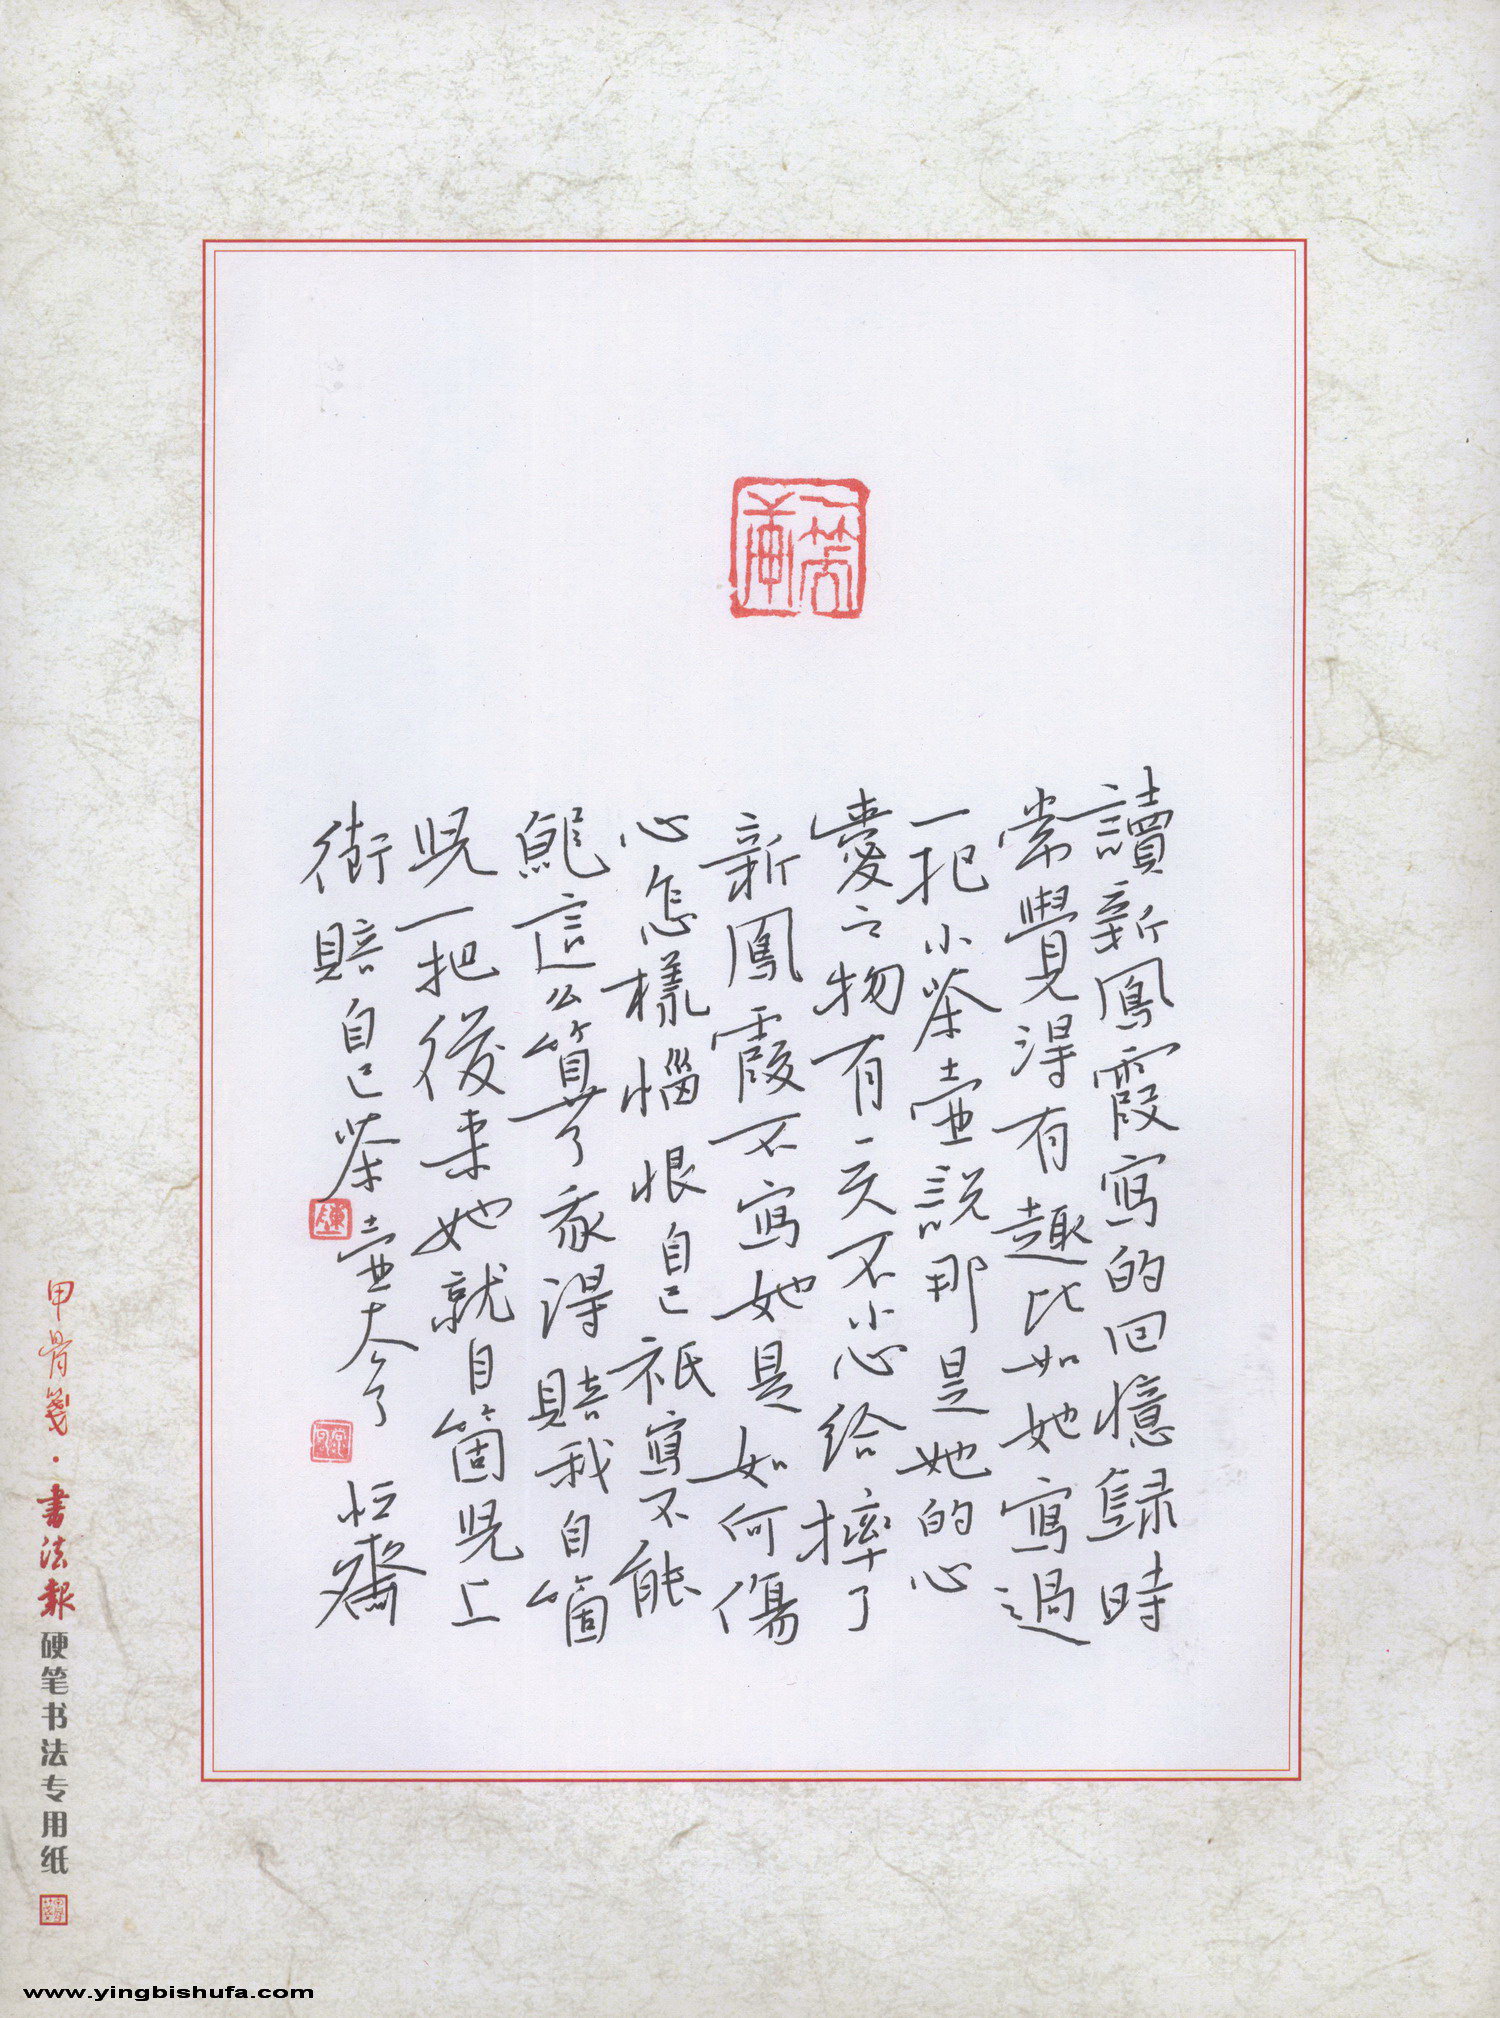 讀新鳳霞寫的回憶録時
常覺得有趣比如她寫過
一把小茶壺説那是她的心
愛之物有一天不小心給摔了
新鳳霞不寫她是如何傷
心怎樣惱恨自己祇寫不能
就這么算了我得賠我自箇
兒一把後来她就自箇兒上
街賠自己茶壺去了
恒齋
甲骨箋·書法報硬笔书法专用纸
www.yingbishufa.com